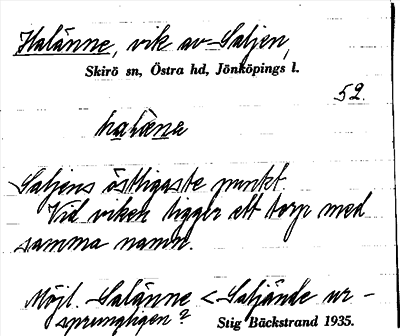 Halänne, vik av Saljen,
Skirö sn, Östra hd, Jönköpings l.
52.
halæna
Saljens östligaste punkt.
Vid viken ligger ett torp med
samma namn.
Möjl. Salänne < Saljände ur-
sprungligen?
Stig Bäckstrand 1935.